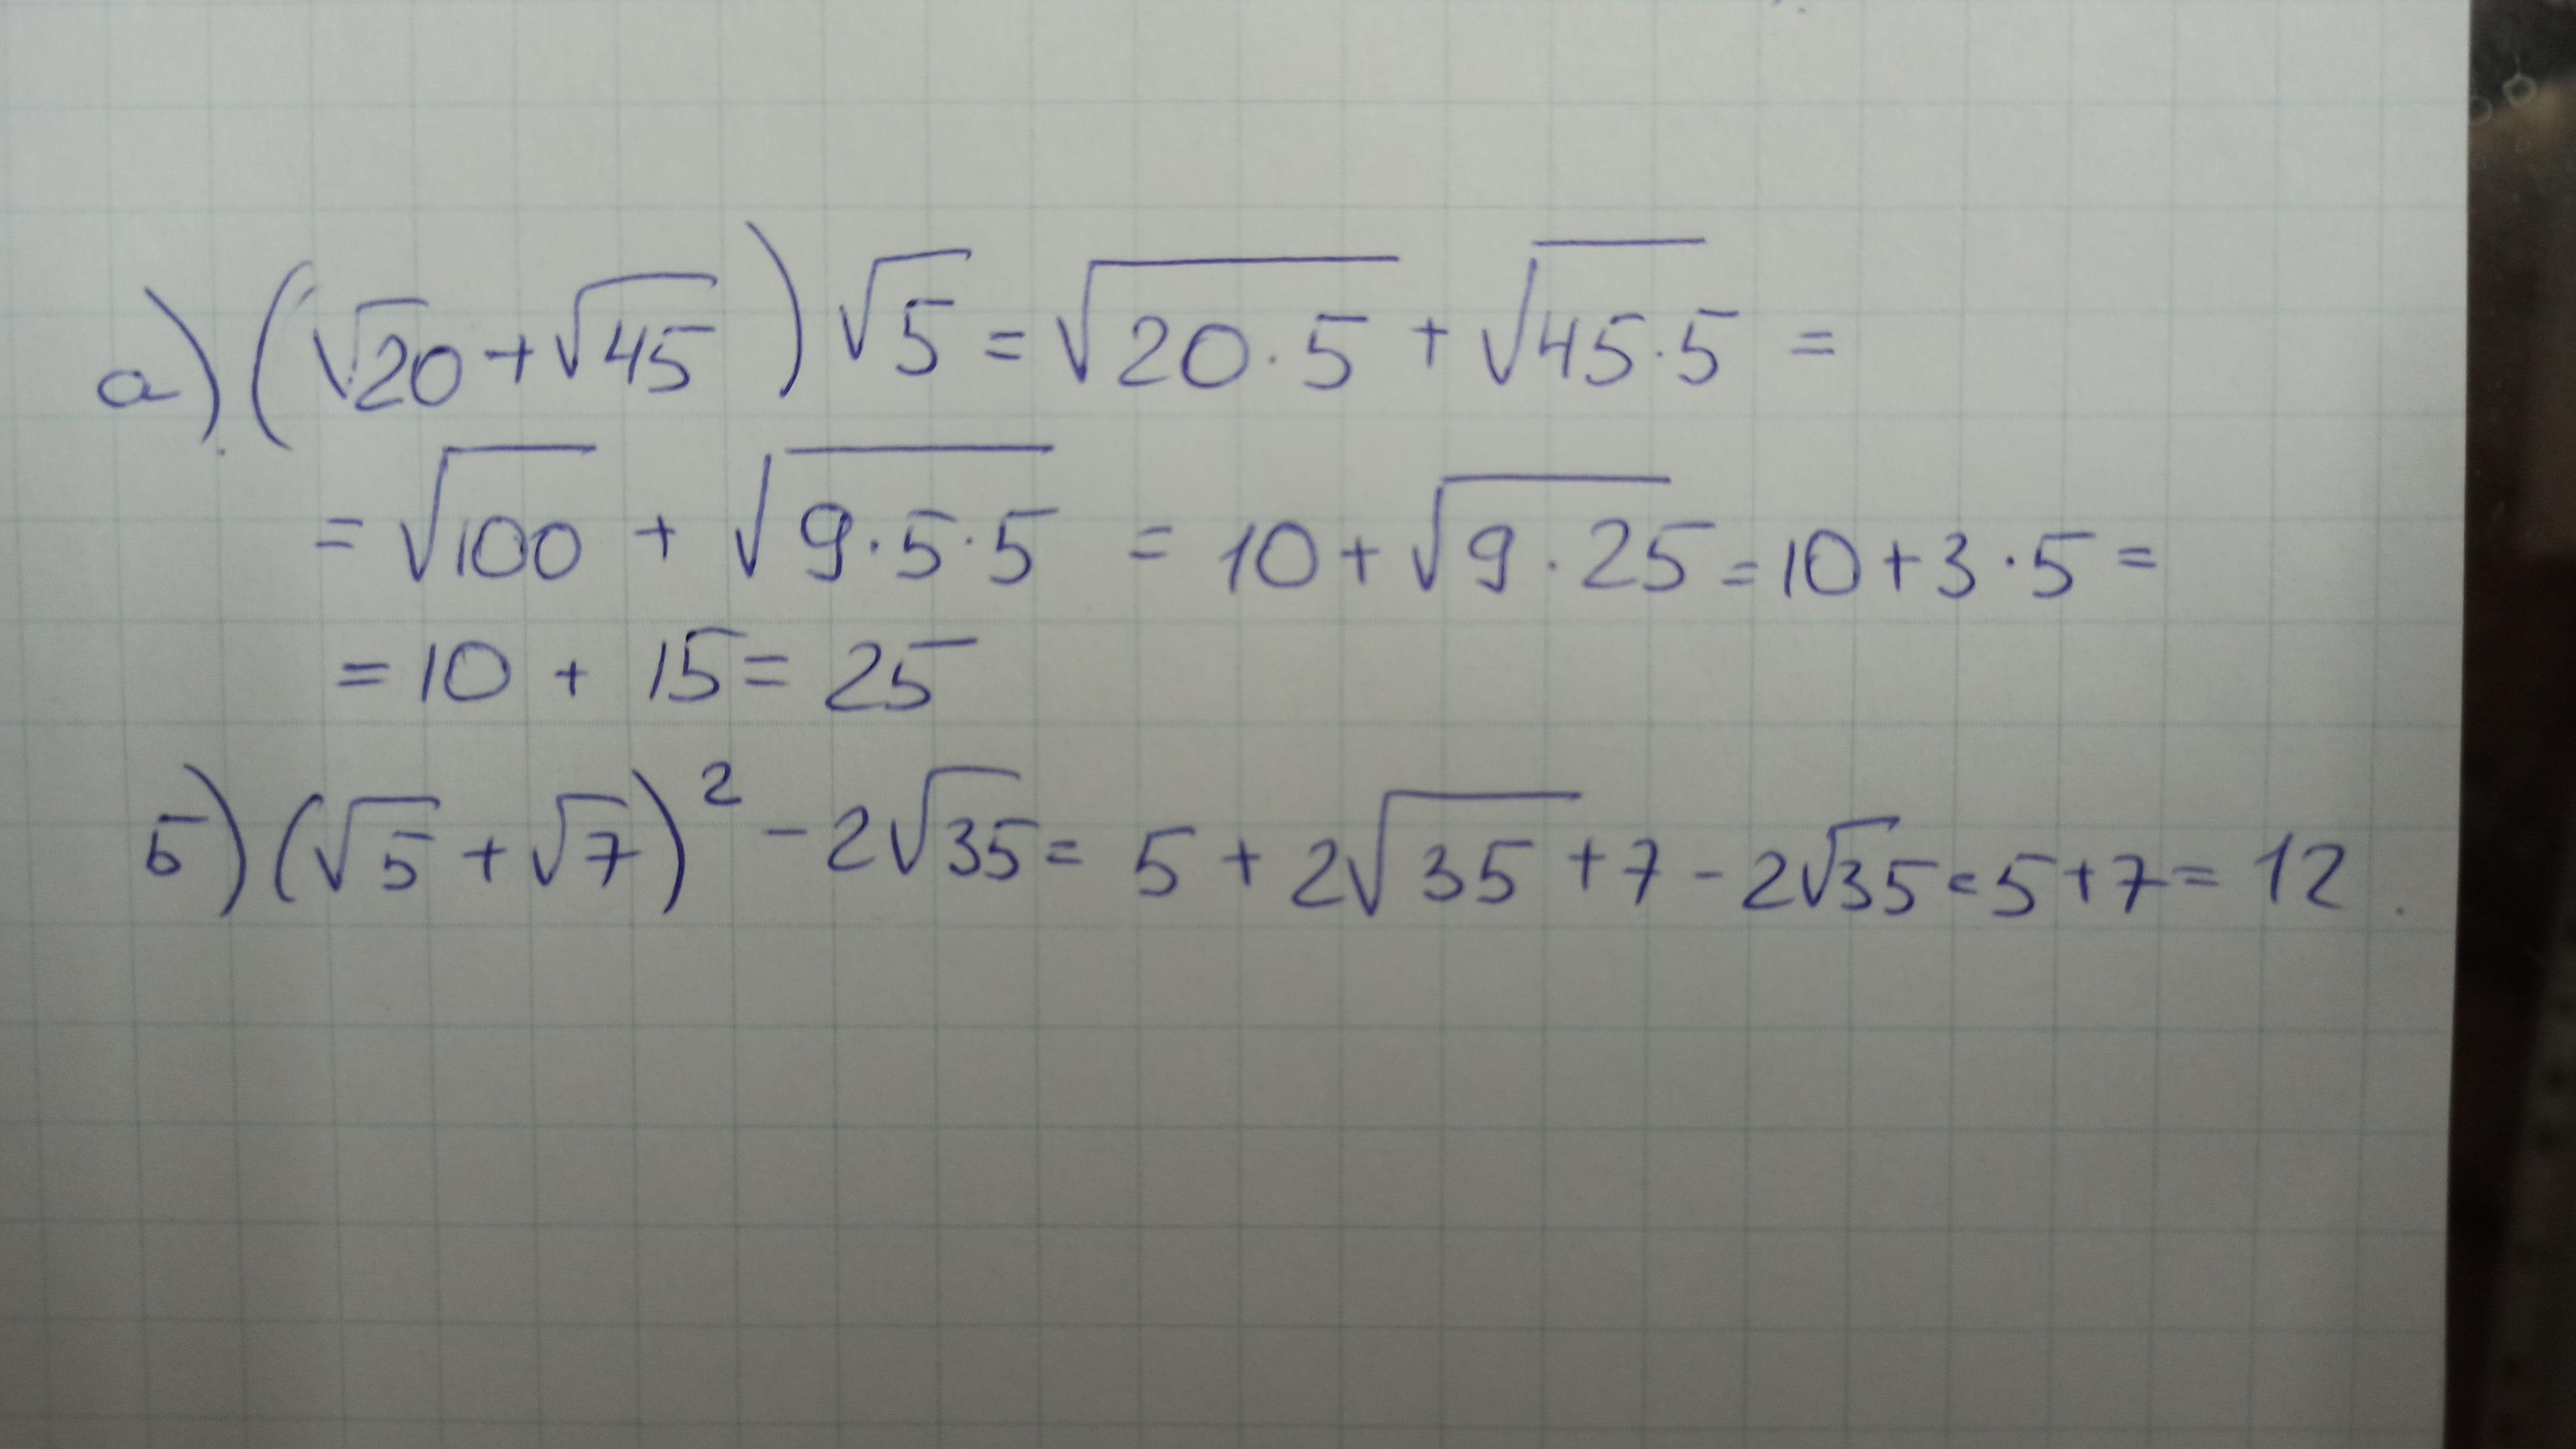 а) (√20 + √45) √5 = √20·5 + √45·5 =
= √100 + √9·5·5 = 10 + √9·25 = 10 + 3·5 =
= 10 + 15 = 25
б) (√5 + √7)² - 2√35 = 5 + 2√35 + 7 - 2√35 = 5 + 7 = 12.